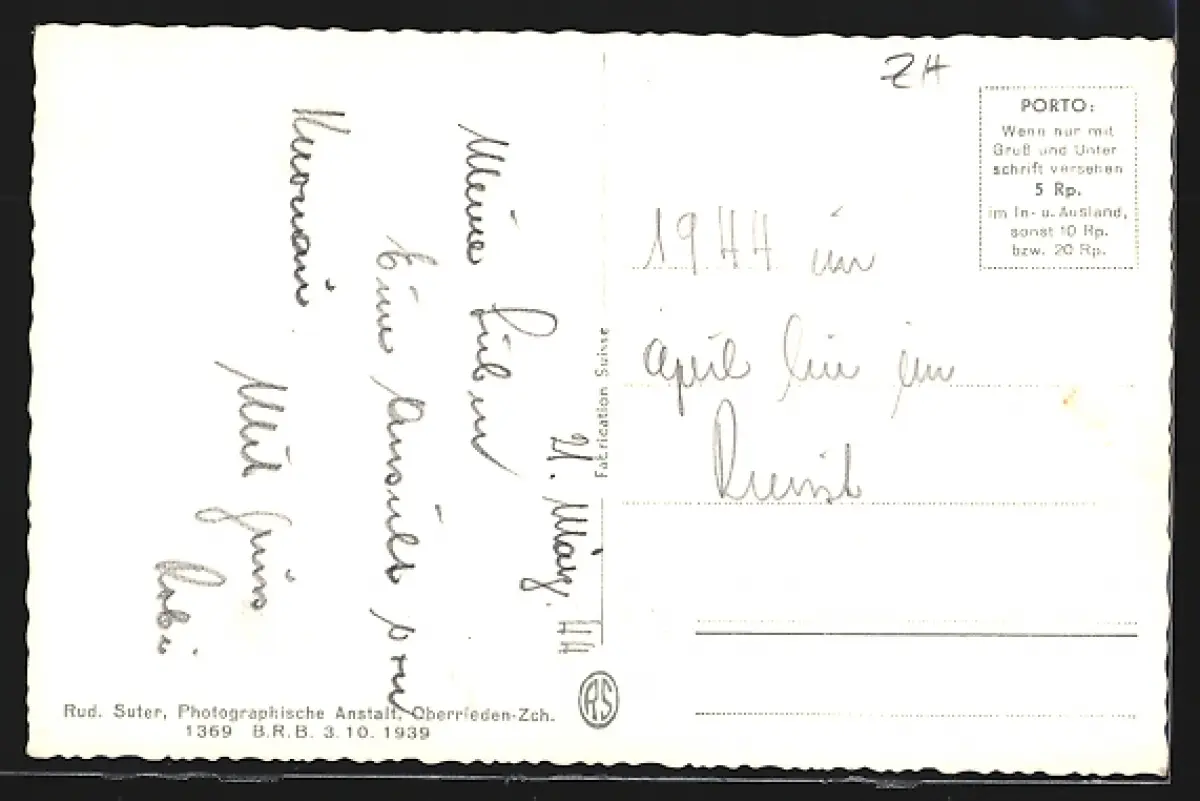 ZH
PORTO:
Wenn nur mit
Gruß und Unter
schrift versehen
5 Rp.
im In- u. Ausland,
sonst 10 Rp.
bzw. 20 Rp.
21. März. 44
Meine Lieben
Eine Ansicht von
Mit Gruss
Robi
1944 im
April bin im
Fabrication Suisse
RS
Rud. Suter, Photographische Anstalt, Oberrieden-Zch.
1369 B.R.B. 3.10.1939